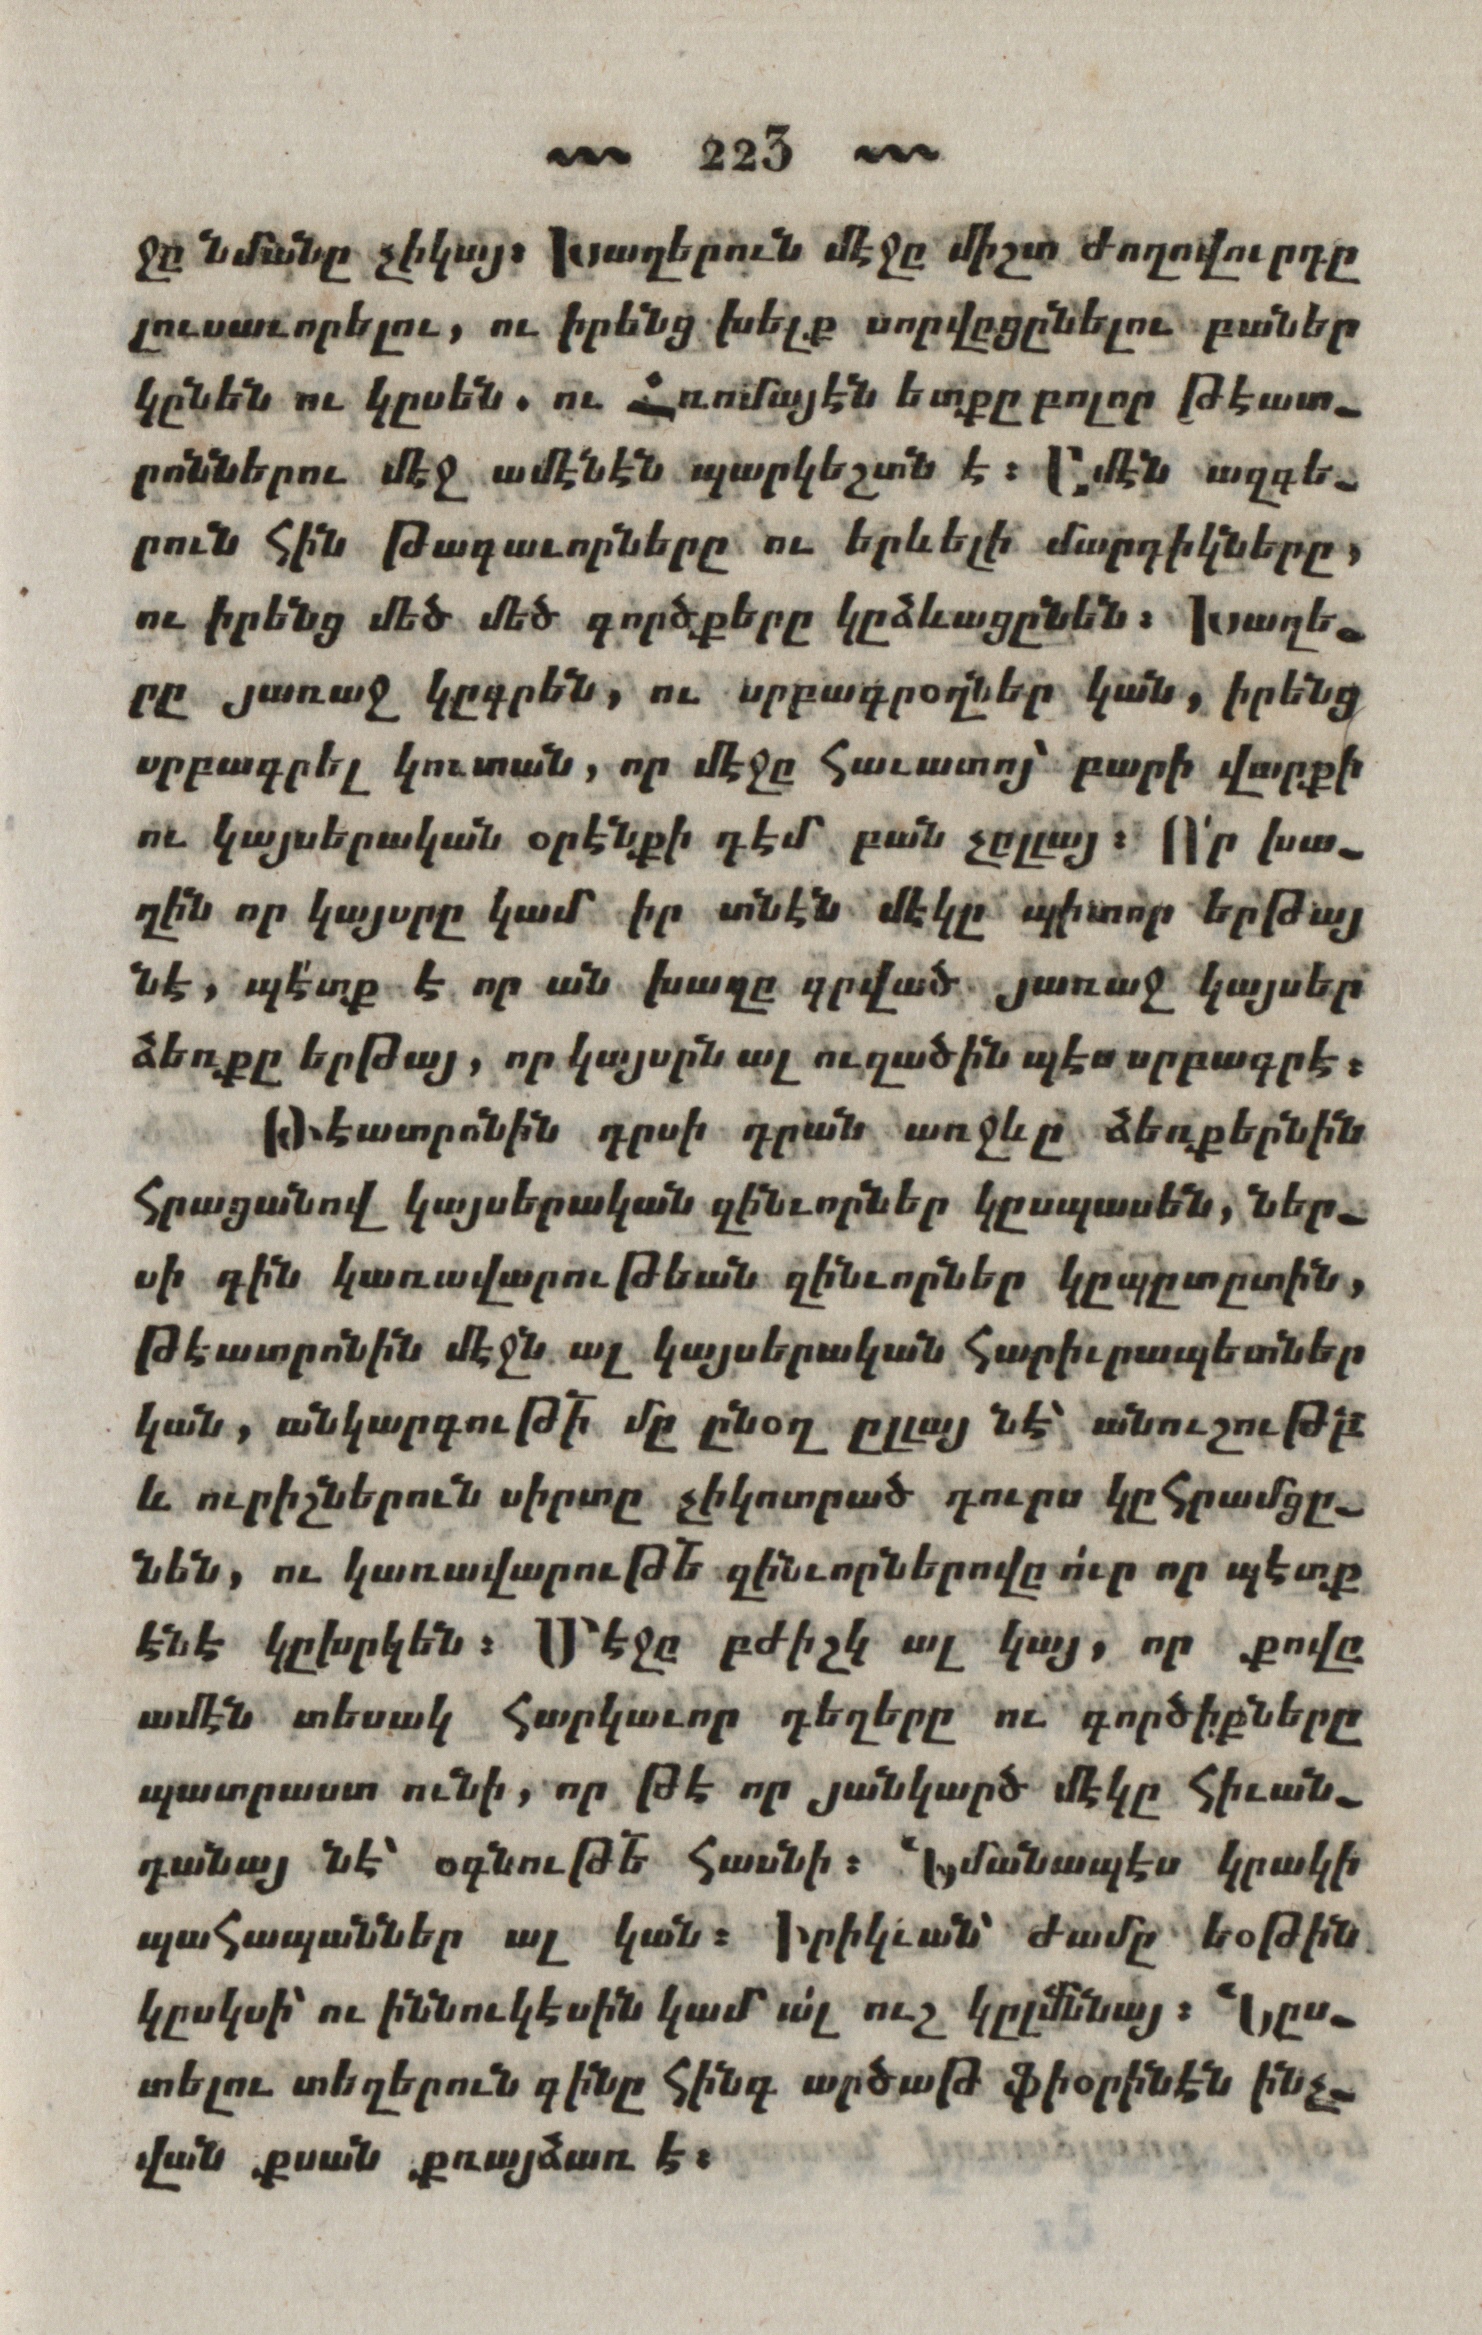 223
ջը նմանը չիկայ։ Խաղերուն մէջը միշտ ժողովուրդը
լուսաւորելու, ու իրենց խելք սորվըցընելու բաներ
կընեն ու կըսեն. ու Հռոմայէն ետքը բոլոր թէատ֊
րոններու մէջ ամէնէն պարկեշտն է։ Ամէն ազգե֊
րուն հին թագաւորները ու երևելի մարդիկները,
ու իրենց մեծ մեծ գործքերը կըձևացընեն։ Խաղե֊
րը յառաջ կըգրեն, ու սրբագրօղներ կան, իրենց
սրբագրել կուտան, որ մէջը հաւատոյ՝ բարի վարքի
ու կայսերական օրէնքի դէմ բան չըլլայ։ Ո՛ր խա֊
ղին որ կայսրը կամ իր տնէն մէկը պիտոր երթայ
նէ, պէ՛տք է որ ան խաղը գրված յառաջ կայսեր
ձեռքը երթայ, որ կայսրն ալ ուղածին պէս սրբագրէ։
Թէատրոնին դրսի դրան առջևը ձեռքերնին
հրացանով կայսերական զինւորներ կըսպասեն, ներ֊
սի դին կառավարութեան զինւորներ կըպըտըտին,
թէատրոնին մէջն ալ կայսերական հարիւրապետներ
կան, անկարգութի մը ընօղ ըլլայ նէ՝ անուշութբ
և ուրիշներուն սիրտը չիկոտրած դուրս կըհրամցը֊
նեն, ու կառավարութե զինւորներովը ո՛ւր որ պէտք
էնէ կըխրկեն։ Մէջը բժիշկ ալ կայ, որ քովը
ամէն տեսակ հարկաւոր դեղերը ու գործիքները
պատրաստ ունի, որ թէ որ յանկարծ մէկը հիւան֊
դանայ նէ՝ օգնութե հասնի։ Նմանապէս կրակի
պահապաններ ալ կան։ Իրիկւան՝ ժամը եօթին
կըսկսի՝ ու իննուկէսին կամ ա՛լ ուշ կըլմննայ։ Նըս֊
տելու տեղերուն գինը հինգ արծաթ ֆիօրինէն ինչ֊
վան քսան քռայձառ է։